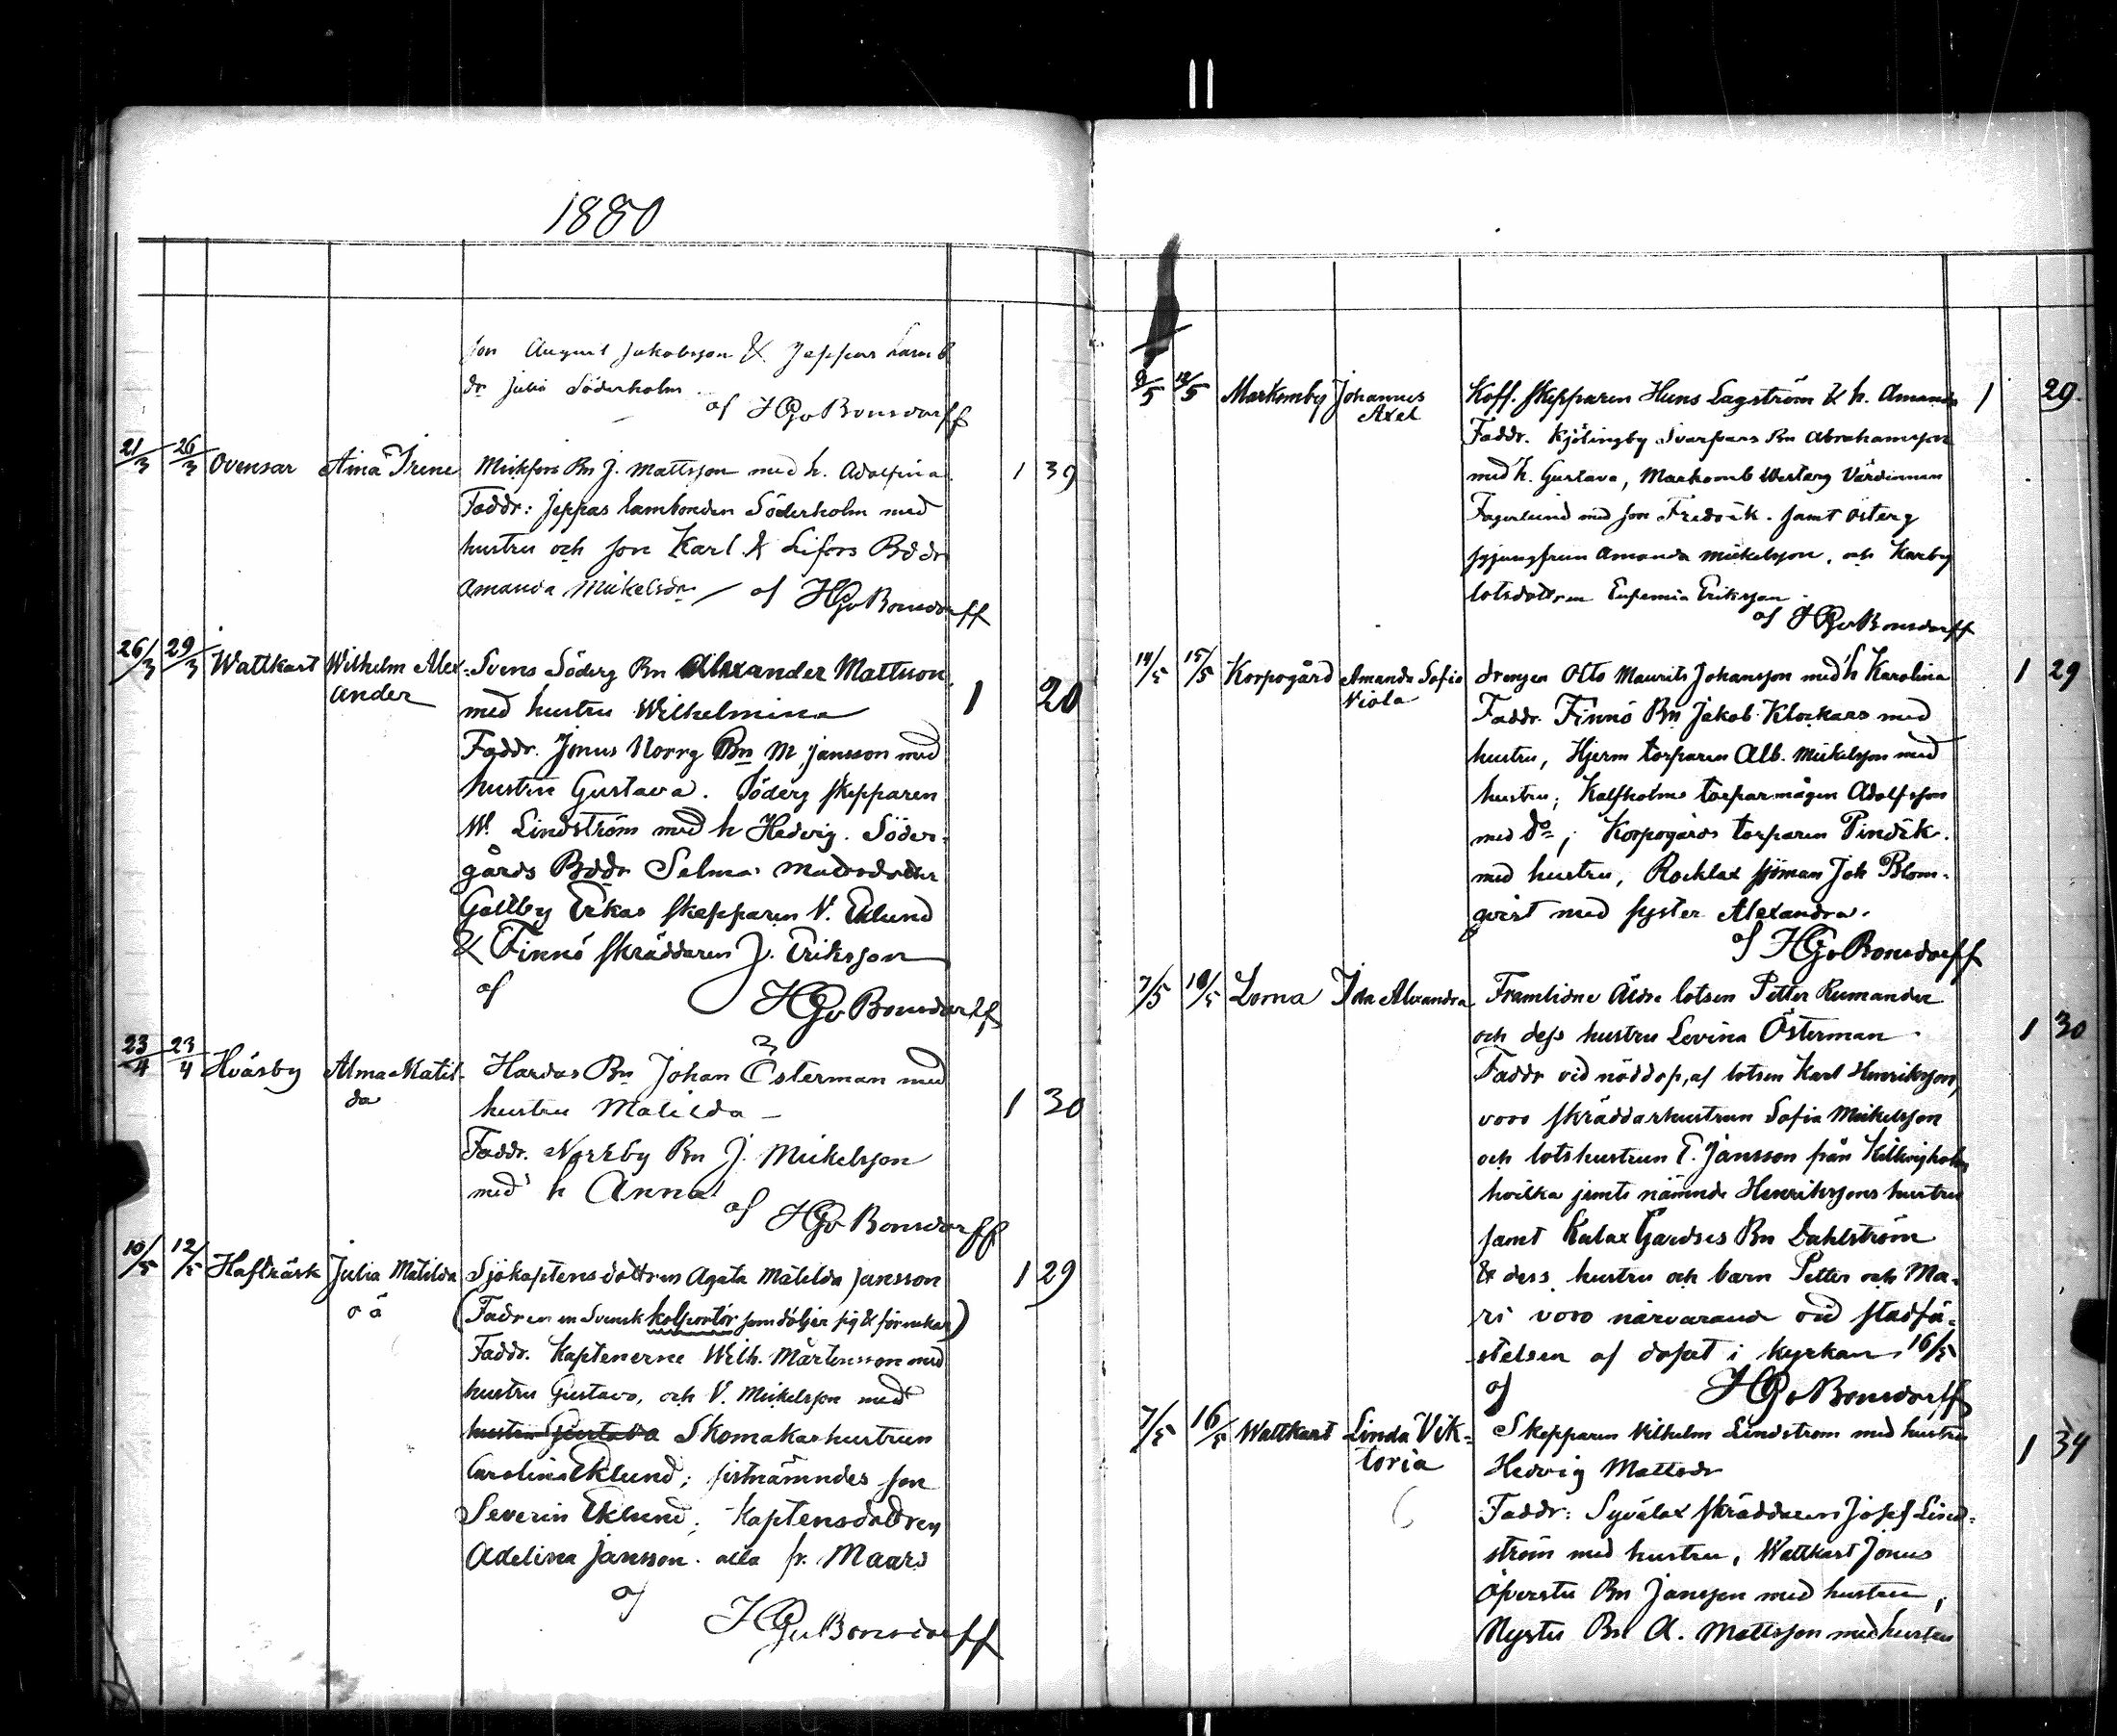 1880
son August Jakobsson & Jeppas Lamb
dr Julia Söderholm
af HGvBonsdorff
21/3 26/3 Ovensar Aina Irene Mickfors Bn J. Mattsson med h. Adolfina 1 39
Faddr: Jeppas Lambonden Söderholm med
hustru och son Karl & Lifors Bddr
Amanda Mickelsdr af HGvBonsdorff
26/3 29/3 Wattkast Wilhelm Alex- Svens Söderg Bn Alexander Mattsson
ander med hustru Wilhelmina 1 20
Faddr. Jonus Norrg Bn M Jansson med
hustru Gustava. Söderg skepparen
W. Lindström med h Hedvig. Söder-
gårds Bddr Selma Matsdotter
Galtby Erkas skepparen V. Eklund
& Finnö skräddaren J. Eriksson
af HGvBonsdorff
23/4 23/4 Hväsby Alma Matil- Hardas Bn Johan Österman med
da hustru Matilda 1 30
Faddr. Norrby Bn J. Mickelsson
med h Anna
af HGvBonsdorff
10/5 12/5 Hafträsk Julia Matilda Sjökaptensdottren Agata Matilda Jansson 1 29
o ä (Fadren en Svensk kolportör som döljer sig & förnekar)
Faddr. Kaptenerne Wilh. Mårtensson med
hustru Gustava, och V. Mickelsson med
hustru Gustava Skomakarhustrun
Carolina Eklund; sistnämndes son
Severin Eklund; Kaptensdottren
Adelina Jansson. alla fr. Maars
af
HGvBonsdorff
9/5 12/5 Markomby Johannes Koff. skepparen Hans Lagström & h. Amanda 1 29.
Axel
Faddr. Kjölingby Svarfvars Bn Abrahamsson
med h. Gustava, Markomb Westerg Värdinnan
Fagerlund med son Fredrik. samt Österg
sjjungfrun Amanda Mickelsson, och Karby
lotsdottren Eufemia Eriksson
af HGvBonsdorff
14/5 15/5 Korpogård Amanda Sofia drengen Otto Maurits Johansson med h Karolina 1 29
Viola
Faddr. Finnö Bn Jakob Klockars med
hustru, Hjerm torparen Alb. Mickelsson med
hustru; Kalfholms torparmågen Adolfsson
med do; Korpogårds torparen
med hustru, Rocklax sjöman Joh Blom-
qvist med syster Alexandra.
af HGvBonsdorff
7/5 10/5 Lorna Ida Alexandra Framlidne Äldre lotsen Petter Rumander
och dess hustru Lovina Österman 1 30
Faddr vid nöddop, af lotsen Karl Henriksson,
voro skräddarhustrun Sofia Mickelsson
och lotshustrun E. Jansson från Killingholm
hvilka jemte nämnde Henrikssons hustru
samt Kalax Gardsis Bn Dahlström
& dess hustru och barn Petter och Ma-
ri voro närvarande vid stadfä-
stelsen af dopet i kyrkan 16/5
af HGvBonsdorff
7/5 16/5 Wattkast Linda Vik- Skepparen Vilhelm Lindström med hustru
toria Hedvig Mattsdr 1 34
Faddr: Syvälax skräddaren Josef Lind-
ström med hustru, Wattkast Jonus
öfverste Bn Jansson med hustru,
Nystu Bn A. Mattsson med hustru